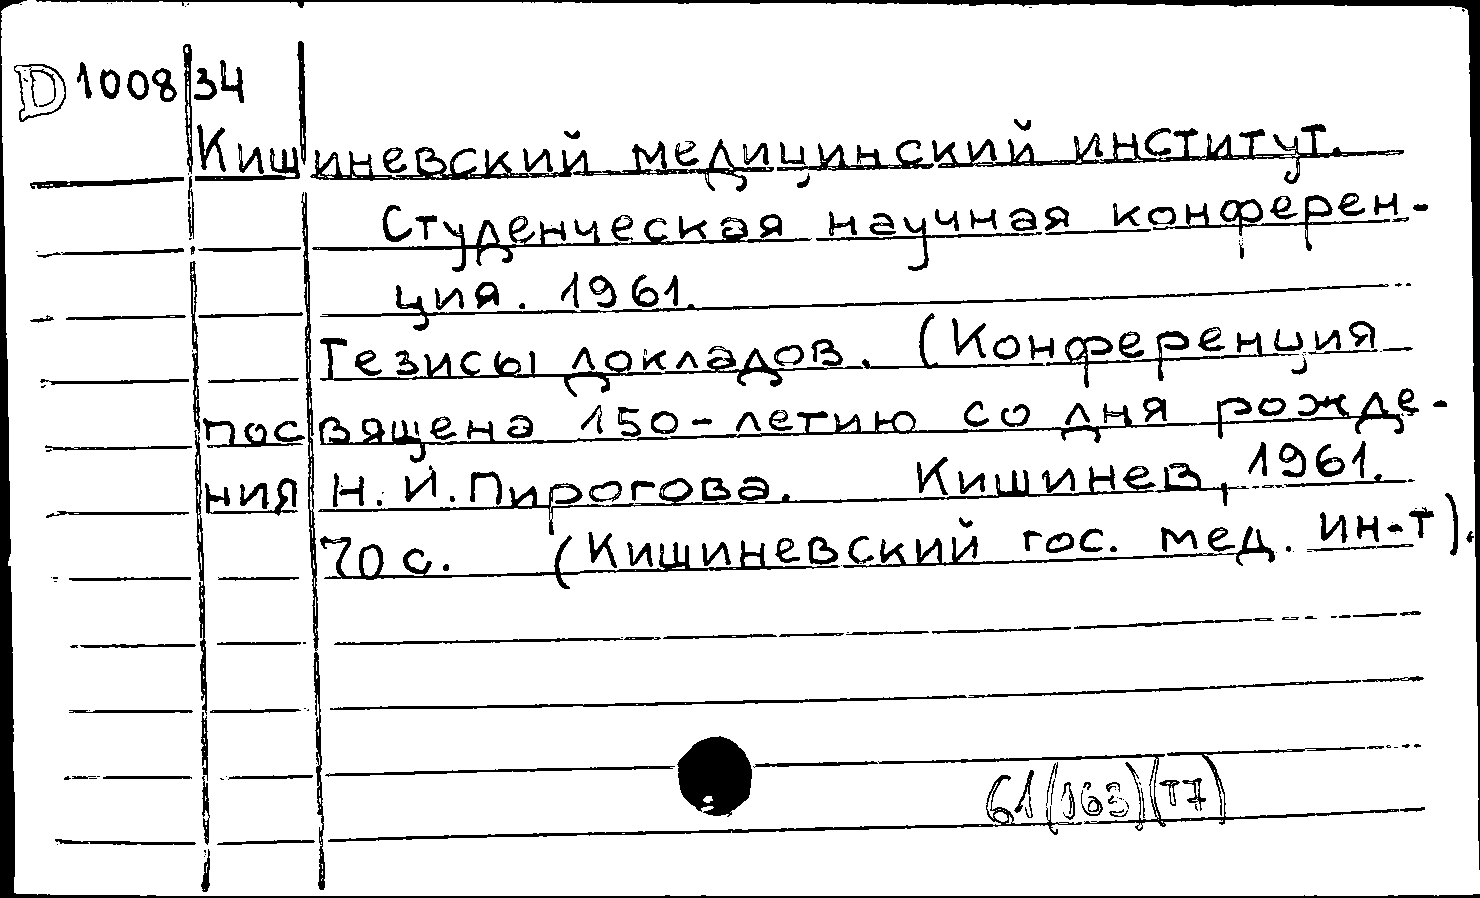 D 1008/34
Кишиневский медицинский институт.
Студенческая научная конферен-
ция. 1961.
Тезисы докладов. (Конференция
посвящена 150-летию со дня рожде-
ния Н.И.Пирогова. Кишинев, 1961.
70 с. (Кишиневский гос. мед. ин-т).
61(063)(Т7)